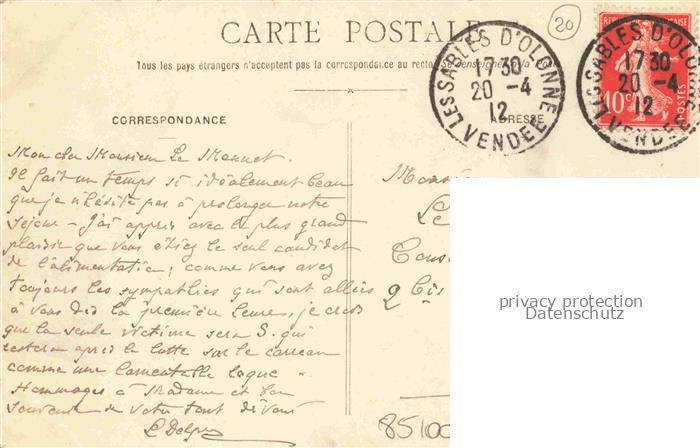 CARTE POSTALE
20
Tous les pays étrangers n'acceptent pas la correspondance au recto. Se renseigner à la Poste
CORRESPONDANCE
ADRESSE
LES SABLES D'OLONNE
17 30
20 -4
12
VENDEE
LES SABLES D'OLONNE
17 30
20 -4
12
VENDEE
10c
POSTES
Mon cher Monsieur Le Monnet.
Il fait un temps si idéalement beau
que je n'hésite pas à prolonger notre
séjour - J'ai appris avec le plus grand
plaisir que vous étiez le seul candidat
de l'alimentation; comme vous avez
toujours les sympathies qui sont allées
à vous dès la première heure, je crois
que la seule victime sera S. qui
restera après la lutte sur le carreau
comme une lamentable loque -
Hommages à Madame et bon
souvenir de votre tout dévoué
Le
Cons
2 bis
privacy protection
Datenschutz
85100